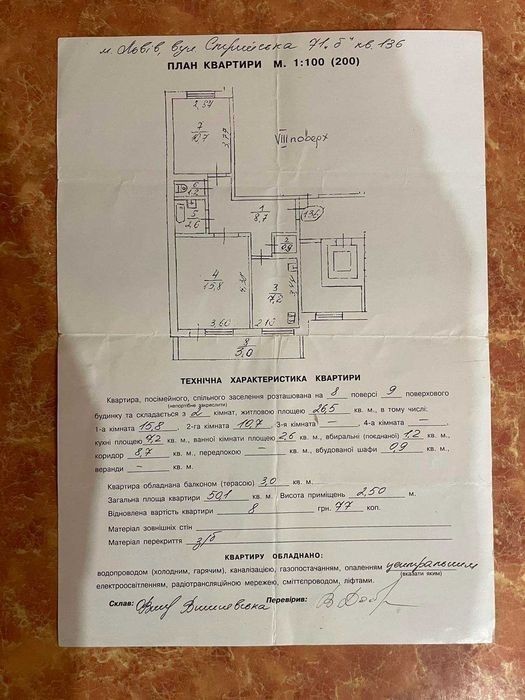 м. Львів, вул Стрийська 71 "б" кв. 136
ПЛАН КВАРТИРИ М. 1:100 (200)
2,84
7
10,7
3,77
VIII поверх
6
1,2
5
2,6
1
8,7
136
2
0,9
4
15,8
4,38
3
7,2
3,44
3,60
2,10
8
3,0
ТЕХНІЧНА ХАРАКТЕРИСТИКА КВАРТИРИ
Квартира, посімейного, спільного заселення розташована на 8 поверсі 9 поверхового
(непотрібне закреслити)
будинку та складається з 2 кімнат, житловою площею 26,5 кв. м., в тому числі:
1-а кімната 15,8 кв. м., 2-га кімната 10,7 кв. м., 3-я кімната — кв. м., 4-а кімната — кв. м.,
кухні площею 7,2 кв. м., ванної кімнати площею 2,6 кв. м., вбиральні (поєднаної) 1,2 кв. м.,
коридор 8,7 кв. м., передпокою — кв. м., вбудованої шафи 0,9 кв. м.,
веранди — кв. м.
Квартира обладнана балконом (терасою) 3,0 кв. м.
Загальна площа квартири 50,1 кв. м. Висота приміщень 2,50 м.
Відновлена вартість квартири 8 грн. 77 коп.
Матеріал зовнішніх стін
Матеріал перекриття з/б
КВАРТИРУ ОБЛАДНАНО:
водопроводом (холодним, гарячим), каналізацією, газопостачанням, опаленням центральним
(вказати яким)
електроосвітленням, радіотрансляційною мережею, сміттєпроводом, ліфтами.
Склав: Перевірив: